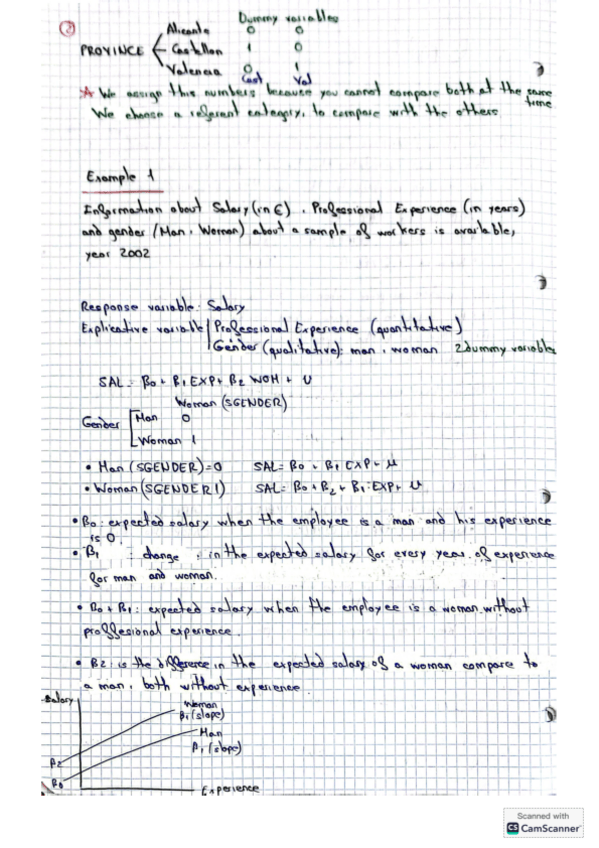 2
Dummy variables
Alicante 0 0
PROVINCE Castellon 1 0
Valencia 0 1
Cast Val
* We assign this numbers because you cannot compare both at the same time
We choose a referent category, to compare with the others
Example 1
Information about Salary (in €), Professional Experience (in years)
and gender (Man, Woman) about a sample of workers is available,
year 2002
Response variable: Salary
Explicative variable Professional Experience (quantitative)
Gender (qualitative): man, woman 2 dummy variables
SAL = β0 + β1 EXP + β2 WOM + U
Woman (SGENDER)
Gender Man 0
Woman 1
• Man (SGENDER) = 0 SAL = β0 + β1 EXP + u
• Woman (SGENDER 1) SAL = β0 + β2 + β1 EXP + u
• β0: expected salary when the employee is a man and his experience
is 0.
• β1 : change in the expected salary for every year of experience
for man and woman.
• β0 + β1: expected salary when the employee is a woman without
proffesional experience.
• β2: is the difference in the expected salary of a woman compare to
a man, both without experience.
Salary
Woman
β1 (slope)
Man
β1 (slope)
β2
β0
Experience
Scanned with
CS CamScanner